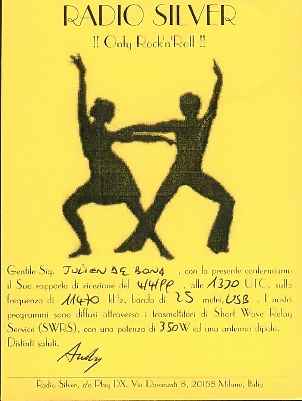 RADIO SILVER
!! Only Rock'n'Roll !!
Gentile Sig. JULIEN DE BONA , con la presente confermiamo
il Suo rapporto di ricezione del 4/4/99 , alle 1370 UTC, sulla
frequenza di 11470 kHz, banda di 25 metri, USB . I nostri
programmi sono diffusi attraverso i trasmettitori di Short Wave Relay
Service (SWRS), con una potenza di 350W ed una antenna dipolo.
Distinti saluti.
Andy
Radio Silver, c/o Play DX, Via Davanzati 8, 20158 Milano, Italy